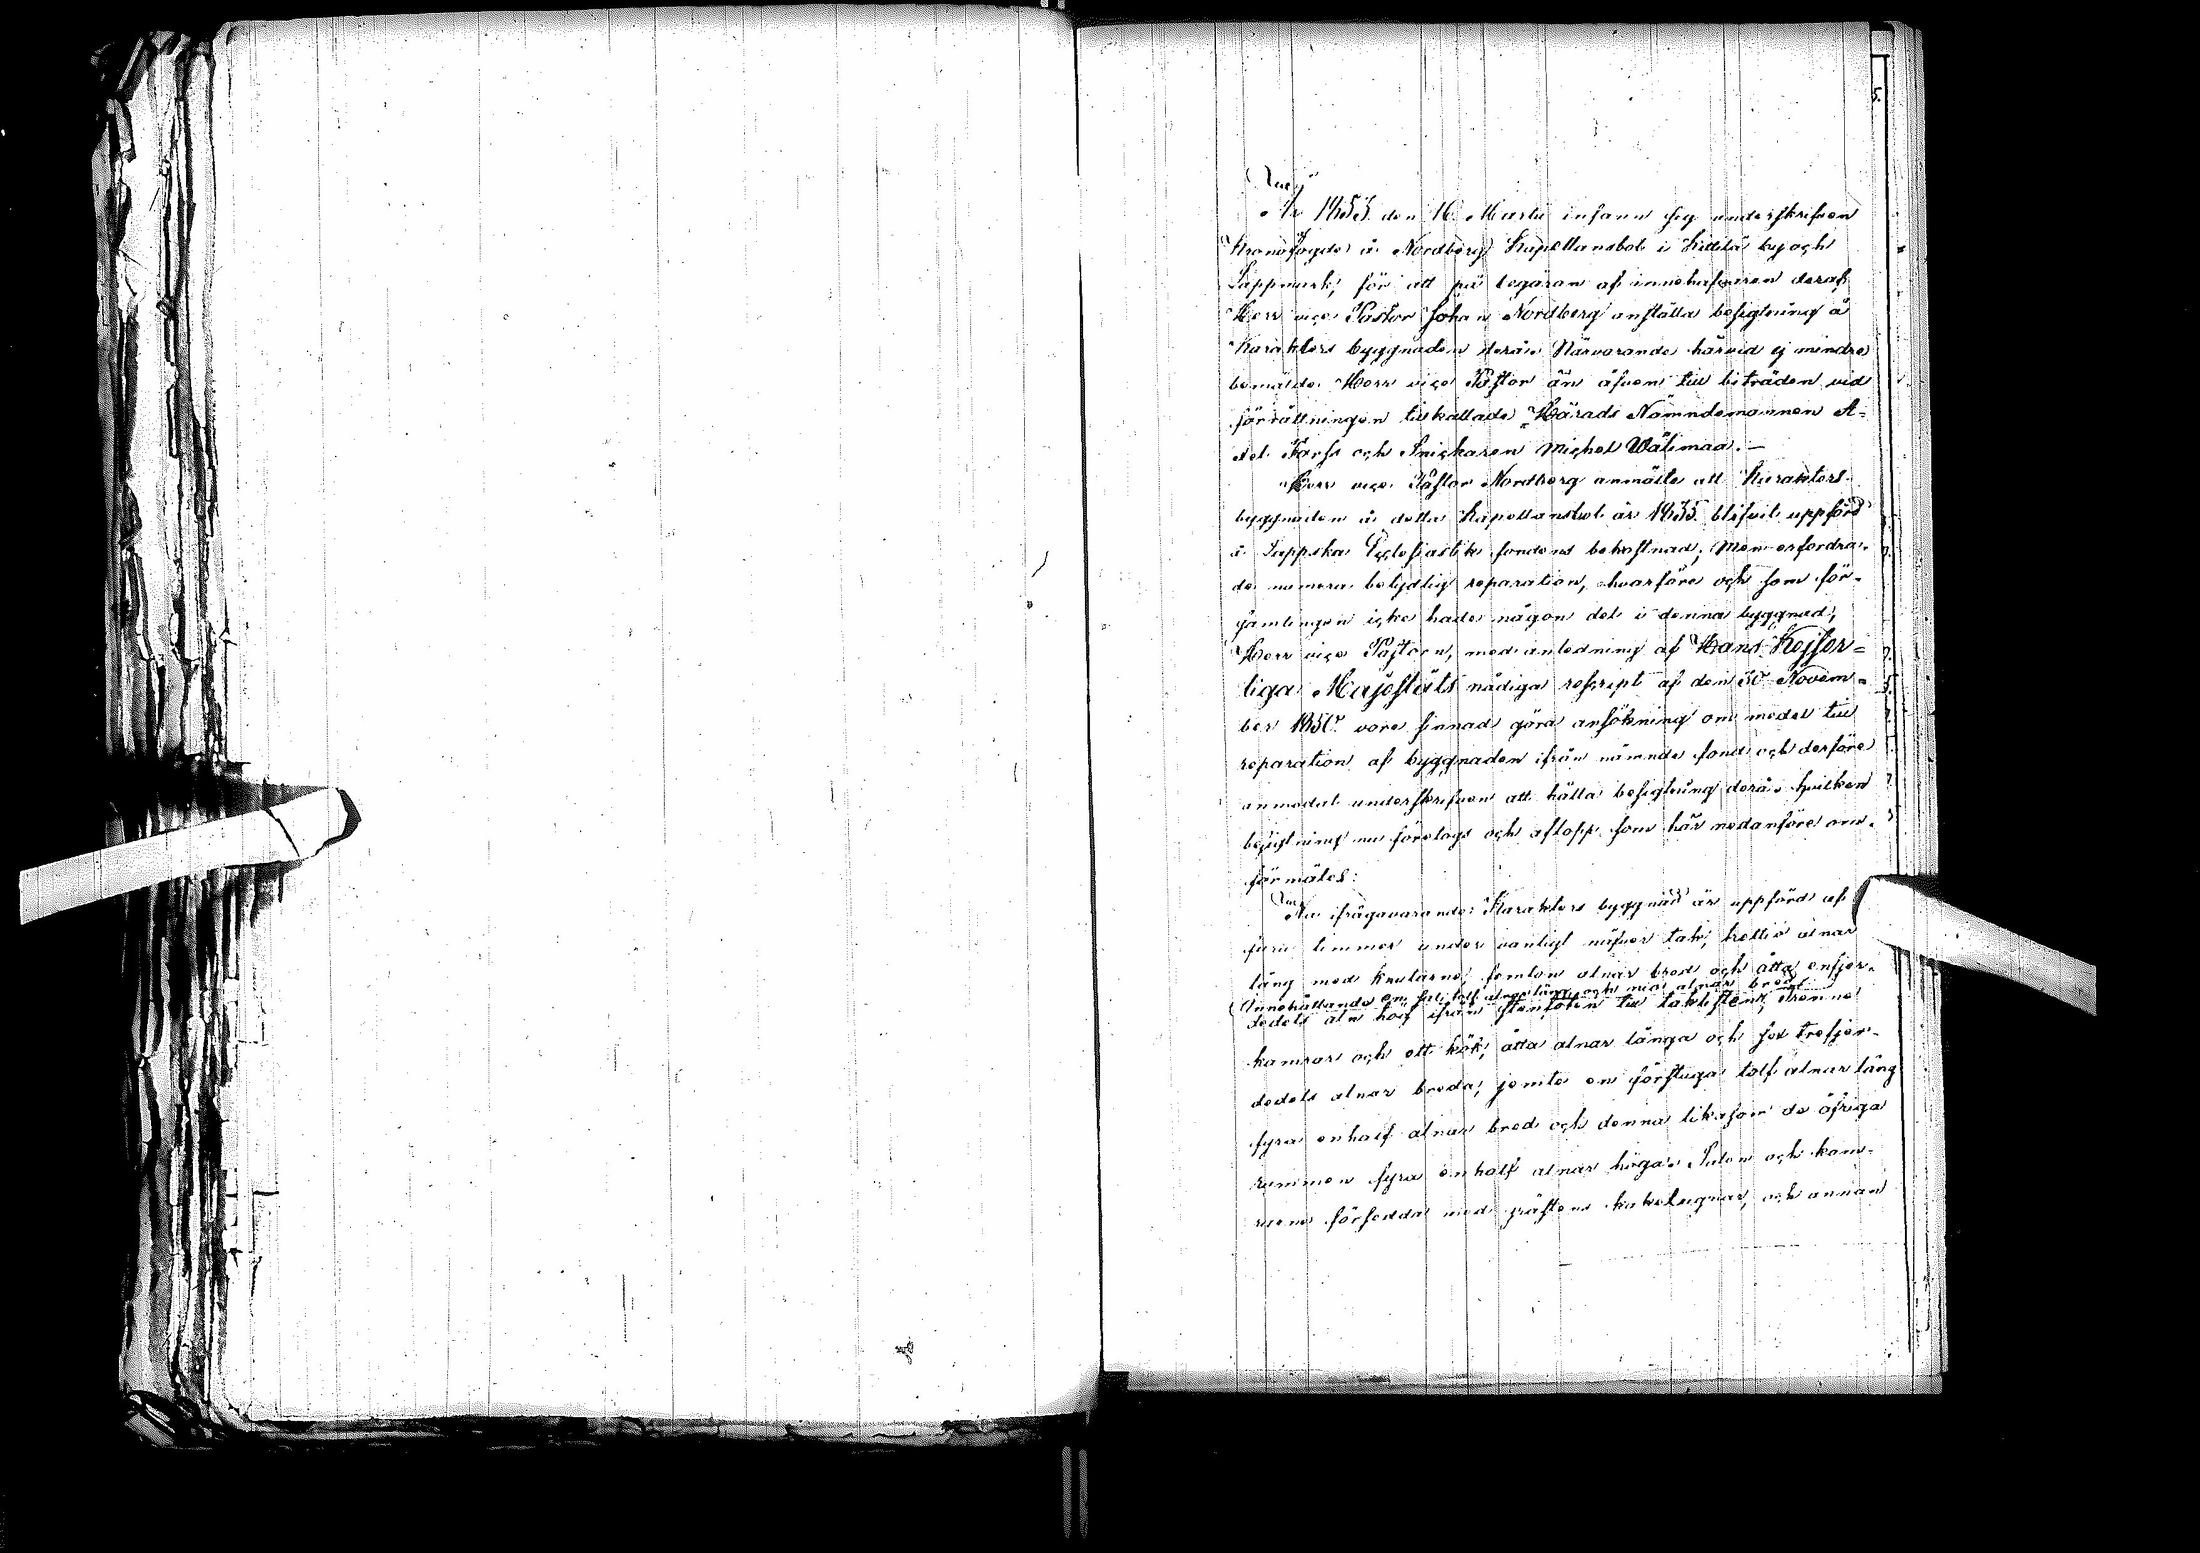 År 1853 den 16 Martii infann sig underskrifven
Kronofogde å Nordberg Kapellansbol i Kittilä by och
Lappmark, för att på begäran af innehafvaren deraf
Herr vice Pastor Johan Nordberg anställa besigtning å
Karakters byggnaden derå. Närvarande härvid ej mindre
bemälde Herr vice Pastor än äfven till biträden vid
förrättningen tilkallade Härads Nämndemannen A-
och Snickaren Michel Wälimaa. —
Herr vice Pastor Nordberg anmälte att Karakters
byggnaden å detta Kapellansbol år 1835 blifvit uppförd
å Lappska Ecclesiastik fondens bekostnad; Men erfordra-
de numera betydlig reparation, hvarföre och som för-
samlingen icke hade någon del i denna byggnad,
Herr vice Pastorn, med anledning af Hans Kejser-
liga Majestäts nådiga rescript af den 30 Novem-
ber 1850 vore sinnad göra ansökning om medel till
reparation af byggnaden ifrån nämnde fond och derföre
anmodat underskrifven att hålla besigtning derå. hvilken
besigtning nu företogs och aflopp som här nedanföre om-
förmäles:
Nu ifrågavarande Karakters byggnad är uppförd af
furu timmer under vanligt näfver tak, trettio alnar
lång med knutarne, femton alnar bred och åtta enfjer-
Innehållande en sal tolf alnar lång och nio alnar bred
dedels aln hög ifrån stenfoten till taklisten, trenne
kamrar och ett kök, åtta alnar långa och sex trefjer-
dedels alnar breda, jemte en förstuga tolf alnar lång
fyra enhalf alnar bred och denna likasom de öfriga
rummen fyra enhalf alnar höga. Salen och kam-
rarne försedda med gråstens kakelugnar, och annan